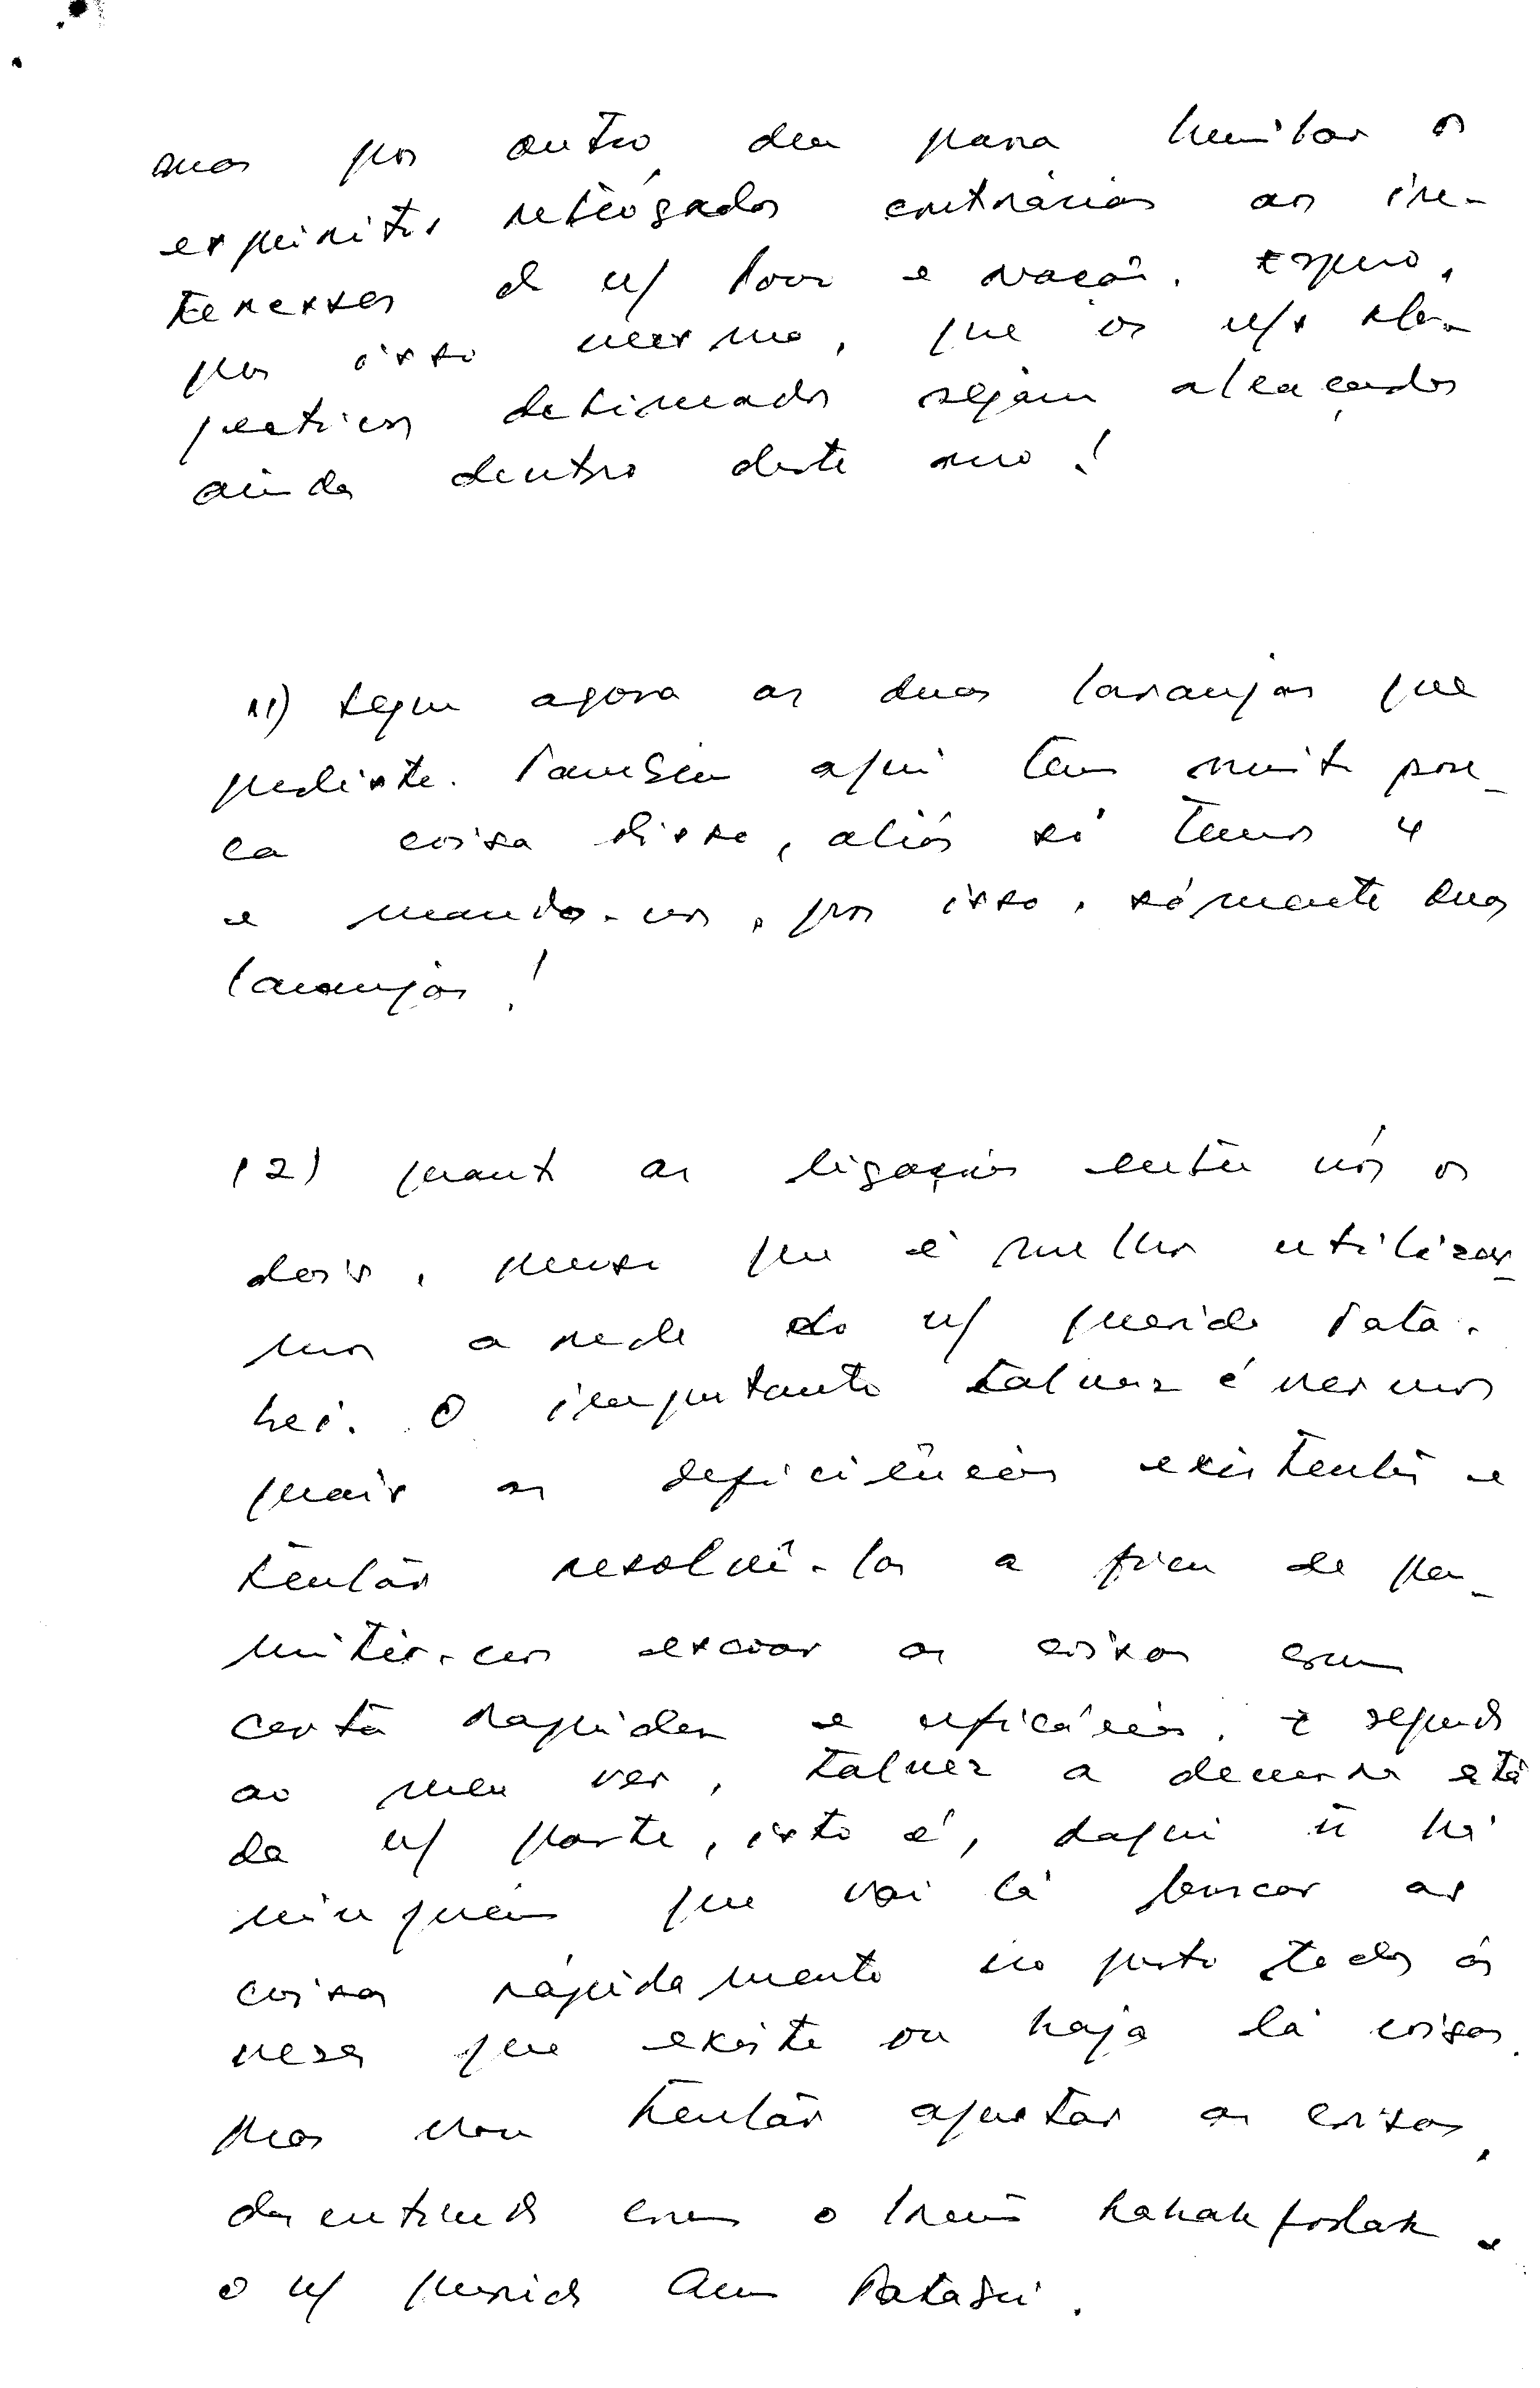 mas por outro, deu para humilhar os
espiritos retrógados contrários aos in-
teresses de n/ Povo e nação. Espero,
por isso mesmo, que os n/s obje-
ctivos delineados sejam alcaçados
ainda dentro deste ano!
11) Segue agora as duas laranjas que
pediste. Também aqui tem muito pou-
ca coisa disso, aliás só temos 4
e mando-vos, por isso, sómente duas
laranjas!
12) quanto as ligações entre nós os
dois, penso que é melhor utilizar-
mos a rede do n/ querido Mata-
hei. O importante talvez é vermos
quais as deficiências existentes e
tentar resolvê-las a fim de per-
mitir-nos escoar as coisas com
certa rapidez e eficácia. E segundo
ao meu ver, talvez a demora está
da n/ parte, isto é, daqui ñ há
ninguém que vai lá buscar as
coisas rápidamente no posto todas as
vezes que existe ou haja lá coisas.
Mas vou tentar ajustar as coisas,
discutindo com o Irmão Hahak fodak e
o n/ querido